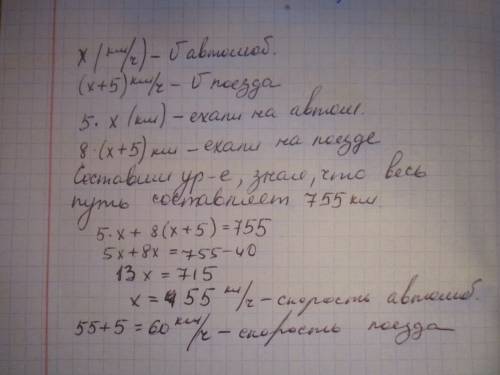 x (км/ч) – υ автомоб.
(x+5) км/ч – υ поезда
5·x (км) – ехали на автом.
8·(x+5) км – ехали на поезде
Составим ур-е, зная, что весь
путь составляет 755 км.
5·x + 8(x+5) = 755
5x+8x = 755-40
13x = 715
x = 55 км/ч – скорость автомоб.
55+5 = 60 км/ч – скорость поезда